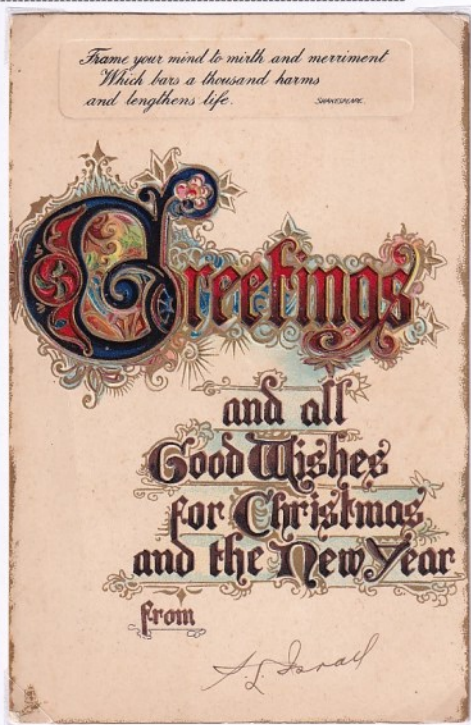 Frame your mind to mirth and merriment
Which bars a thousand harms
and lengthens life. SHAKESPEARE.
Greetings
and all
Good Wishes
for Christmas
and the New Year
from
S. L. Israel